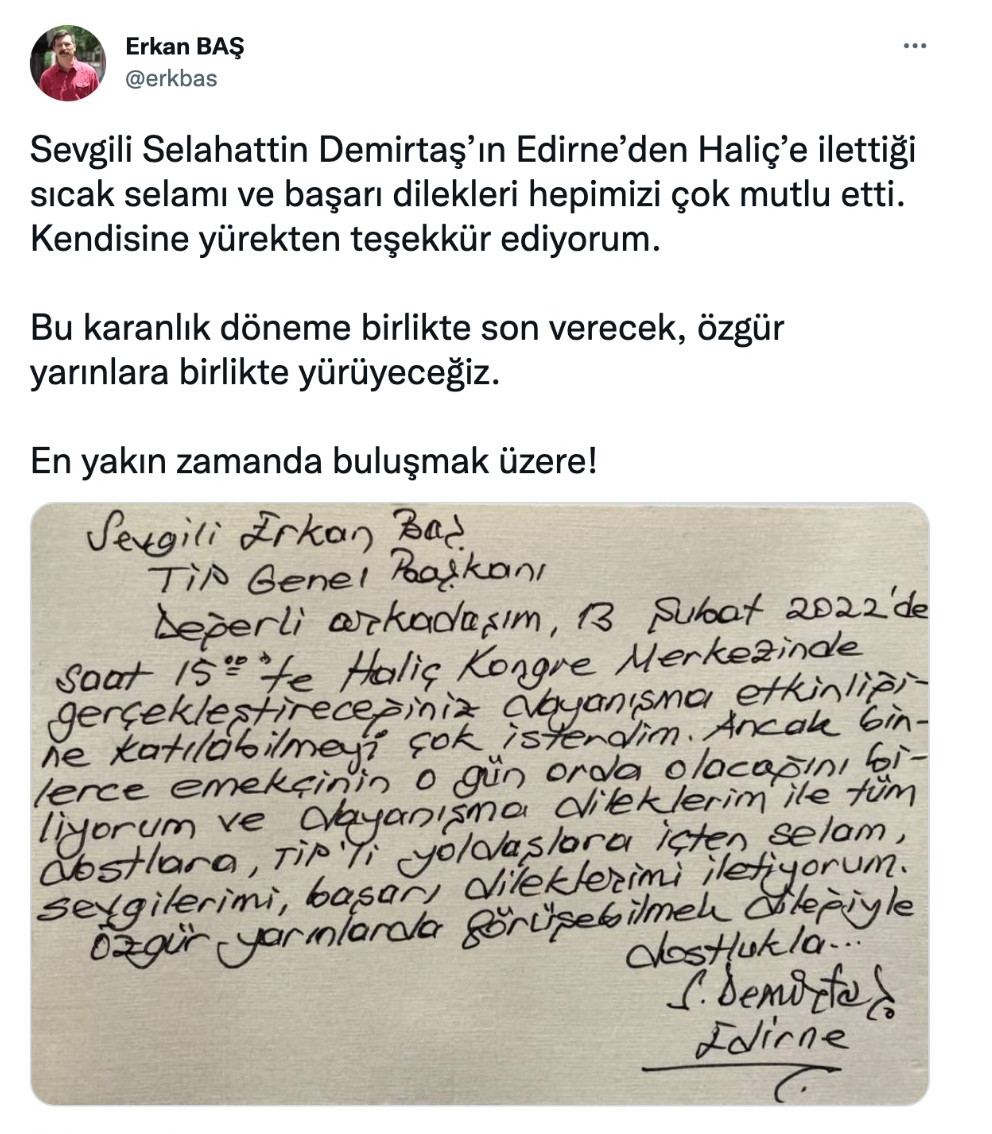 Erkan BAŞ
@erkbas
Sevgili Selahattin Demirtaş’ın Edirne’den Haliç’e ilettiği
sıcak selamı ve başarı dilekleri hepimizi çok mutlu etti.
Kendisine yürekten teşekkür ediyorum.
Bu karanlık döneme birlikte son verecek, özgür
yarınlara birlikte yürüyeceğiz.
En yakın zamanda buluşmak üzere!
Sevgili Erkan Baş
TİP Genel Başkanı
Değerli arkadaşım, 13 Şubat 2022'de
saat 15⁰⁰'te Haliç Kongre Merkezinde
gerçekleştireceğiniz dayanışma etkinliği-
ne katılabilmeyi çok isterdim. Ancak bin-
lerce emekçinin o gün orda olacağını bi-
liyorum ve dayanışma dileklerim ile tüm
dostlara, TİP'li yoldaşlara içten selam,
sevgilerimi, başarı dileklerimi iletiyorum.
Özgür yarınlarda görüşebilmek dileğiyle
dostlukla...
S. Demirtaş
Edirne